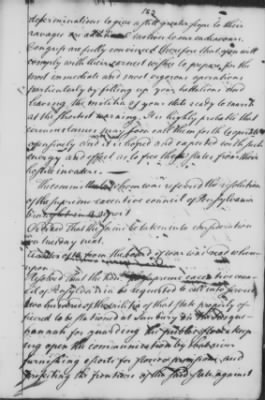 182
determinations to give a still greater scope to their
ravages
Congress are fully convinced therefore that you will
comply with their earnest wishes to prepare for the
most immediate and most vigorous operations
particularly by filling up your battalions and
having the militia of your state ready to march
at the shortest warning. It is highly probable that
circumstances may soon call them forth to operate
offensively and it is hoped and expected with such
energy and effect as to free these states from their
hostile invaders.
The committee to whom was referred the resolution
of the supreme executive council of Pensylvania
brought in a report
Ordered That the same be taken into consideration
on tuesday next.
A letter of 17 from the board of war was read whereupon
Resolved That the supreme executive council
of Pensylvania be requested to call into service
two hundred of the militia of that state properly officered
to be stationed at Sunbury on the Susquehannah
for guarding the public stores keeping
open the communication by
furnishing escorts for stores & provisions, and
protecting the frontiers of the said state against